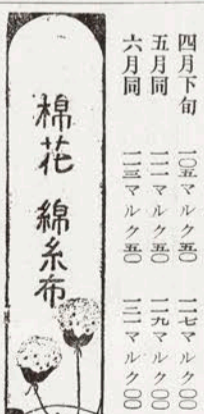 四月下旬　一〇五マルク五〇　一一七マルク〇〇
五月同　一一一マルク五〇　一一九マルク〇〇
六月同　一一三マルク五〇　一二一マルク〇〇
棉花　綿糸布